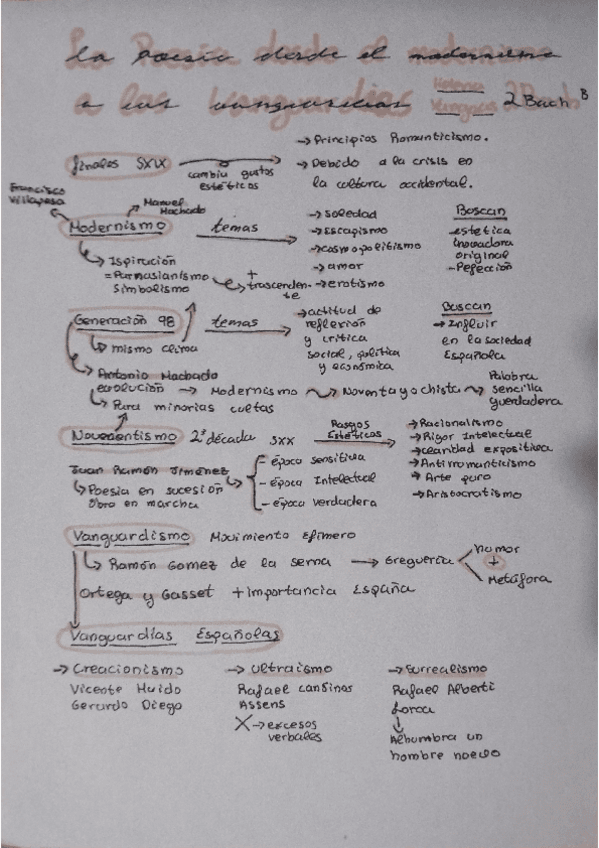 La Poesía desde el modernismo
a las vanguardias
2 Bach B
finales SXIX
cambia gustos
estéticos
→ Principios Romanticismo.
→ Debido a la crisis en
la cultura occidental.
Francisco
Villapesa
Manuel
Machado
Modernismo
temas
→ soledad
→ Escapismo
→ cosmopolitismo
→ amor
→ erotismo
Buscan
estética
Inovadora
original
- Pefección
Ispiración
= Parnasianismo
Simbolismo
+
trascenden-
te
Generación 98
temas
→ actitud de
reflexión
y crítica
social, política
y económica
Buscan
→ Influir
en la sociedad
Española
mismo clima
Antonio Machado
evolución → Modernismo Noventayochista
Palabra
sencilla
y verdadera
Para minorias cultas
Novecentismo 2ª década SXX
Rasgos
Estéticos
→ Racionalismo
→ Rigor Intelectual
→ claridad expositiva
→ Antirromanticismo
→ Arte puro
→ Aristocratismo
Juan Ramón Jiménez
Poesia en sucesión
Obra en marcha
- época sensitiva
- época Intelectual
- época verdadera
Vanguardismo Movimiento Efímero
Ramón Gomez de la serna → Greguería
humor
+
Metáfora
Ortega y Gasset + importancia España
Vanguardias Españolas
→ Creacionismo
Vicente Huido
Gerardo Diego
→ Ultraismo
Rafael Cansinos
Assens
X → excesos
verbales
→ Surrealismo
Rafael Alberti
Lorca
Alhumbra un
hombre nuevo